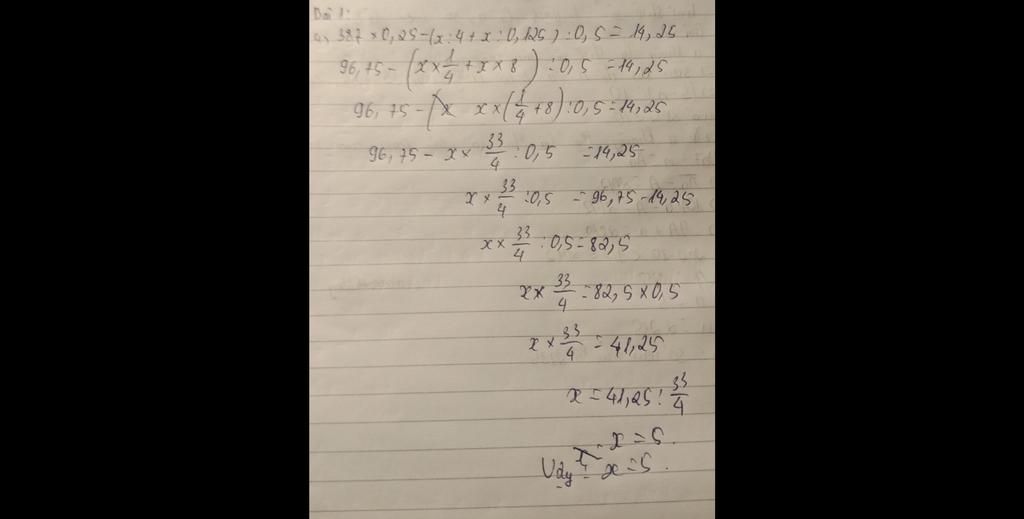 Bài 1:
a, 387 × 0,25 - (x : 4 + x : 0,125) : 0,5 = 14,25
96,75 - (x × 1/4 + x × 8) : 0,5 = 14,25
96,75 - x × (1/4 + 8) : 0,5 = 14,25
96,75 - x × 33/4 : 0,5 = 14,25
x × 33/4 : 0,5 = 96,75 - 14,25
x × 33/4 : 0,5 = 82,5
x × 33/4 = 82,5 × 0,5
x × 33/4 = 41,25
x = 41,25 : 33/4
x = 5.
Vậy x = 5.